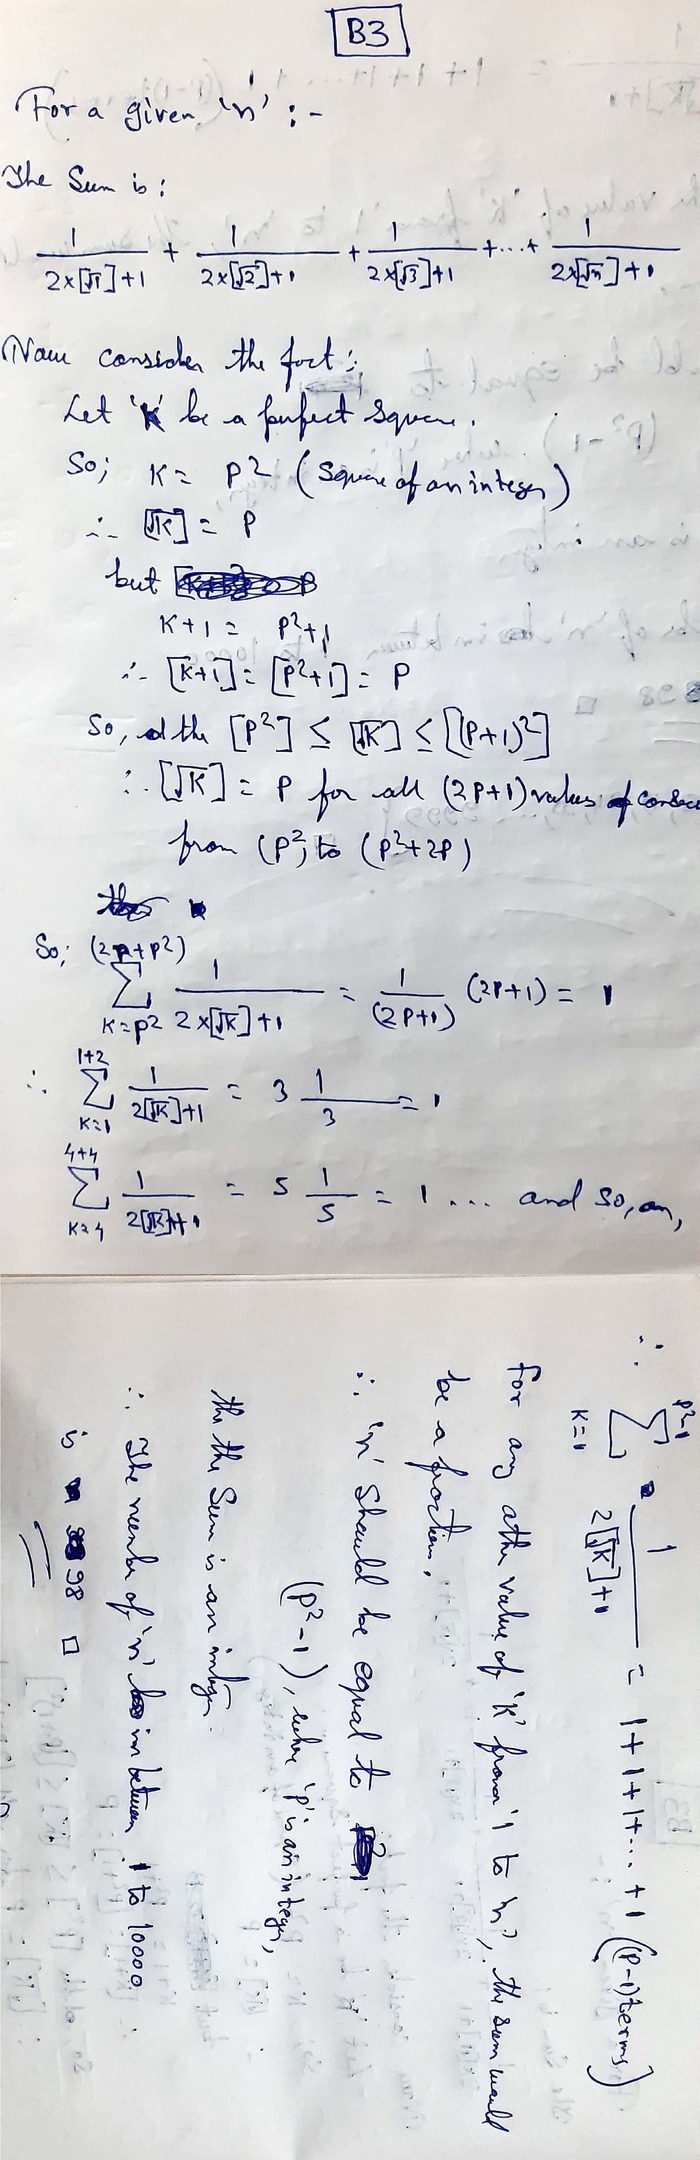 B3
For a given 'n' :-
The Sum is:
1/(2×[√1]+1) + 1/(2×[√2]+1) + 1/(2×[√3]+1) + ... + 1/(2×[√n]+1)
Now consider the fact:
Let 'K' be a perfect square.
So; K = P² (Square of an integer)
∴ [√K] = P
but
K+1 = P²+1
∴ [K+1] = [P²+1] = P
So, the [P²] ≤ [√K] ≤ [(P+1)²]
∴ [√K] = P for all (2P+1) values of consec
from (P²) to (P²+2P)
So; ∑_{K=P²}^{(2P+P²)} 1/(2×[√K]+1) = 1/(2P+1) (2P+1) = 1
∴ ∑_{K=1}^{1+2} 1/(2[√K]+1) = 3 1/3 = 1
∑_{K=4}^{4+4} 1/(2[√K]+1) = 5 1/5 = 1 ... and so, on,
∴ ∑_{K=1}^{P²-1} 1/(2[√K]+1) = 1+1+1+...+1 ((P-1) terms)
For any other value of 'K' from '1 to n', the sum would
be a fraction.
∴ 'n' Should be equal to
(P²-1), where 'P' is an integer,
the the Sum is an integer.
∴ The number of 'n' in between 1 to 10000
is 98 □